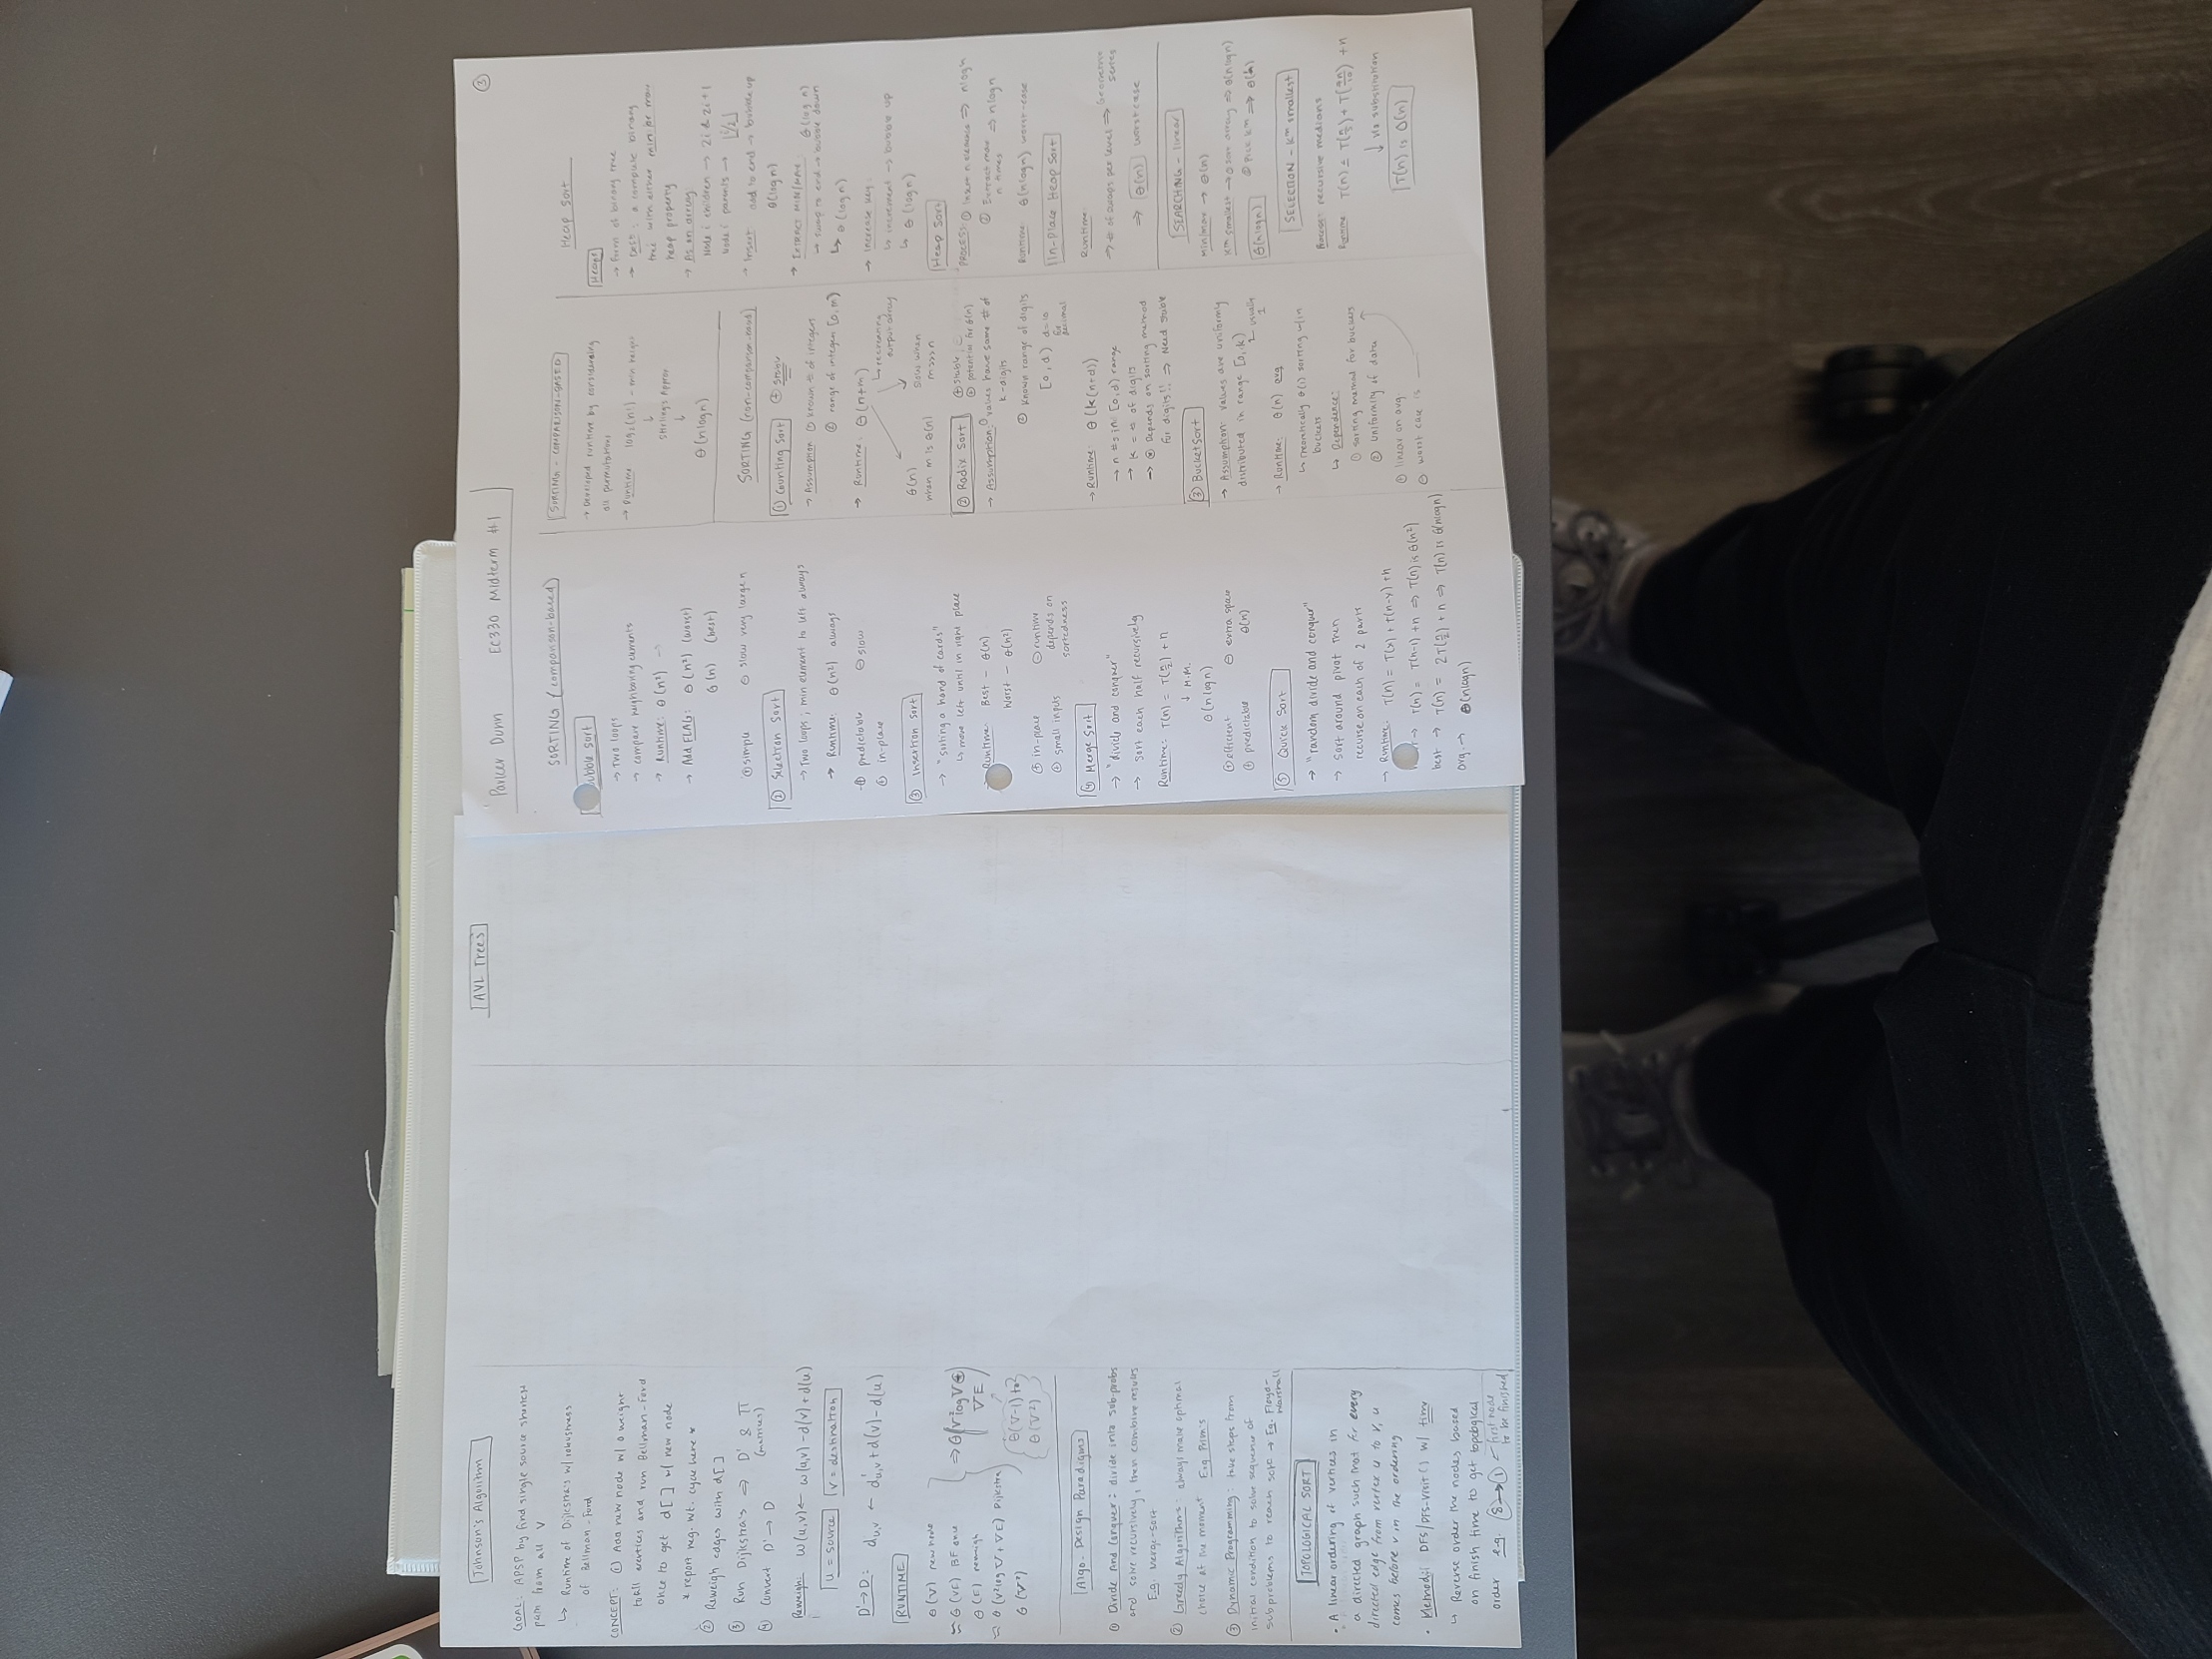 Johnson's Algorithm
GOAL: APSP by find single source shortest
path from all V
↳ Runtime of Dijkstra's w/ robustness
of Bellman-Ford
CONCEPT: ① Add new node w/ 0 weight
to all vertices and run Bellman-Ford
once to get d[] w/ new node
* report neg. wt. cycle here *
② Reweigh edges with d[]
③ Run Dijkstra's ⇒ D' & Π
(matrices)
④ Convert D' → D
Reweigh: w(u,v) ← w(u,v) - d(v) + d(u)
u = source v = destination
D'→D: d u,v ← d' u,v + d(v) - d(u)
RUNTIME
Θ(V) new node
≈ Θ(VE) BF once
Θ(E) reweigh
≈ Θ(V²log V + VE) Dijkstra
Θ(V²)
⇒ Θ(V² log V ⊕
VE)
Θ(V-1) to
Θ(V²)
Algo. Design Paradigms
① Divide and Conquer: divide into sub-probs
and solve recursively, then combine results
E.g. Merge-sort
② Greedy Algorithms: always make optimal
choice at the moment E.g. Prim's
③ Dynamic Programming: take steps from
initial condition to solve sequence of
subproblems to reach soln → Eg. Floyd-
Warshall
TOPOLOGICAL SORT
• A linear ordering of vertices in
a directed graph such that for every
directed edge from vertex u to v, u
comes before v in the ordering
• Method: DFS/DFS-Visit() w/ time
↳ Reverse order the nodes based
on finish time to get topological
order e.g. 8 → 1 ← first node
to be finished
AVL Trees
Parker Dunn EC330 Midterm #1
③
SORTING (comparison-based)
ubble Sort
→ Two loops
→ compare neighboring elements
→ Runtime: Θ(n²) →
→ Add FLAG: Θ(n²) (worst)
Θ(n) (best)
⊕ simple ⊖ slow very large n
② Selection Sort
→ Two loops; min element to left always
→ Runtime: Θ(n²) always
⊕ predictable ⊖ slow
⊕ in-place
③ Insertion Sort
→ "sorting a hand of cards"
↳ move left until in right place
Runtime: Best - Θ(n)
Worst - Θ(n²)
⊕ in-place ⊖ runtime
depends on
⊕ small inputs
sortedness
④ Merge Sort
→ "divide and conquer"
→ sort each half recursively
Runtime: T(n) = T(n/2) + n
↓ M.M.
Θ(n log n)
⊕ efficient ⊖ extra space
⊕ predictable Θ(n)
⑤ Quick Sort
→ "random divide and conquer"
→ Sort around pivot then
recurse on each of 2 parts
→ Runtime: T(n) = T(x) + T(n-x) + n
→ T(n) = T(n-1) + n ⇒ T(n) is Θ(n²)
best → T(n) = 2T(n/2) + n ⇒ T(n) is Θ(nlogn)
avg. → Θ(nlogn)
SORTING - COMPARISON-BASED
→ Developed runtime by considering
all permutations
→ Runtime: log₂(n!) - min height
↓
Stirling's Approx
↓
Θ(nlogn)
SORTING (non-comparison-based)
① Counting Sort ⊕ Stable
→ Assumption ① known # of integers
② range of integers [0,m)
→ Runtime: Θ(n+m)
↳ recreating
output array
Θ(n)
when m is Θ(n)
Slow when
m>>>n
② Radix Sort ⊕ stable
⊕ potential for Θ(n)
→ Assumption: ① values have same # of
k-digits
② known range of digits
[0,d) d=10
for
decimal
→ Runtime: Θ(k(n+d))
→ n #s in [0,d) range
→ k = # of digits
→ Depends on sorting method
for digits!! ⇒ Need stable
③ Bucket Sort
→ Assumption: values are uniformly
distributed in range [0,k)
usually
1
→ Runtime: Θ(n) avg
↳ Theoretically Θ(1) sorting w/in
buckets
↳ Dependence:
① sorting method for buckets
② uniformity of data
⊕ linear on avg.
⊖ worst case is
Heap Sort
Heaps
→ form of binary tree
→ Def: a complete binary
tree with either min or max
heap property
→ As an array:
Node i children → 2i & 2i+1
Node i parents → ⌊i/2⌋
→ Insert: add to end → bubble up
Θ(log n)
→ EXTRACT MIN/MAX: Θ(log n)
→ swap to end → bubble down
↳ Θ(log n)
→ Increase key:
↳ increment → bubble up
↳ Θ(log n)
Heap Sort
PROCESS: ① Insert n elements ⇒ nlogn
② Extract max
n times ⇒ nlogn
Runtime: Θ(nlogn) worst-case
In-Place Heap Sort
Runtime:
⇒ # of swaps per level ⇒ Geometric
Series
⇒ Θ(n) worst case
SEARCHING - linear
min/max → Θ(n)
Kth smallest → ① sort array ⇒ Θ(nlogn)
② Pick kth ⇒
Θ(nlogn)
SELECTION - Kth smallest
Process: recursive medians
Runtime T(n) ≤ T(n/5) + T(9n/10) + n
↓ via substitution
T(n) is O(n)